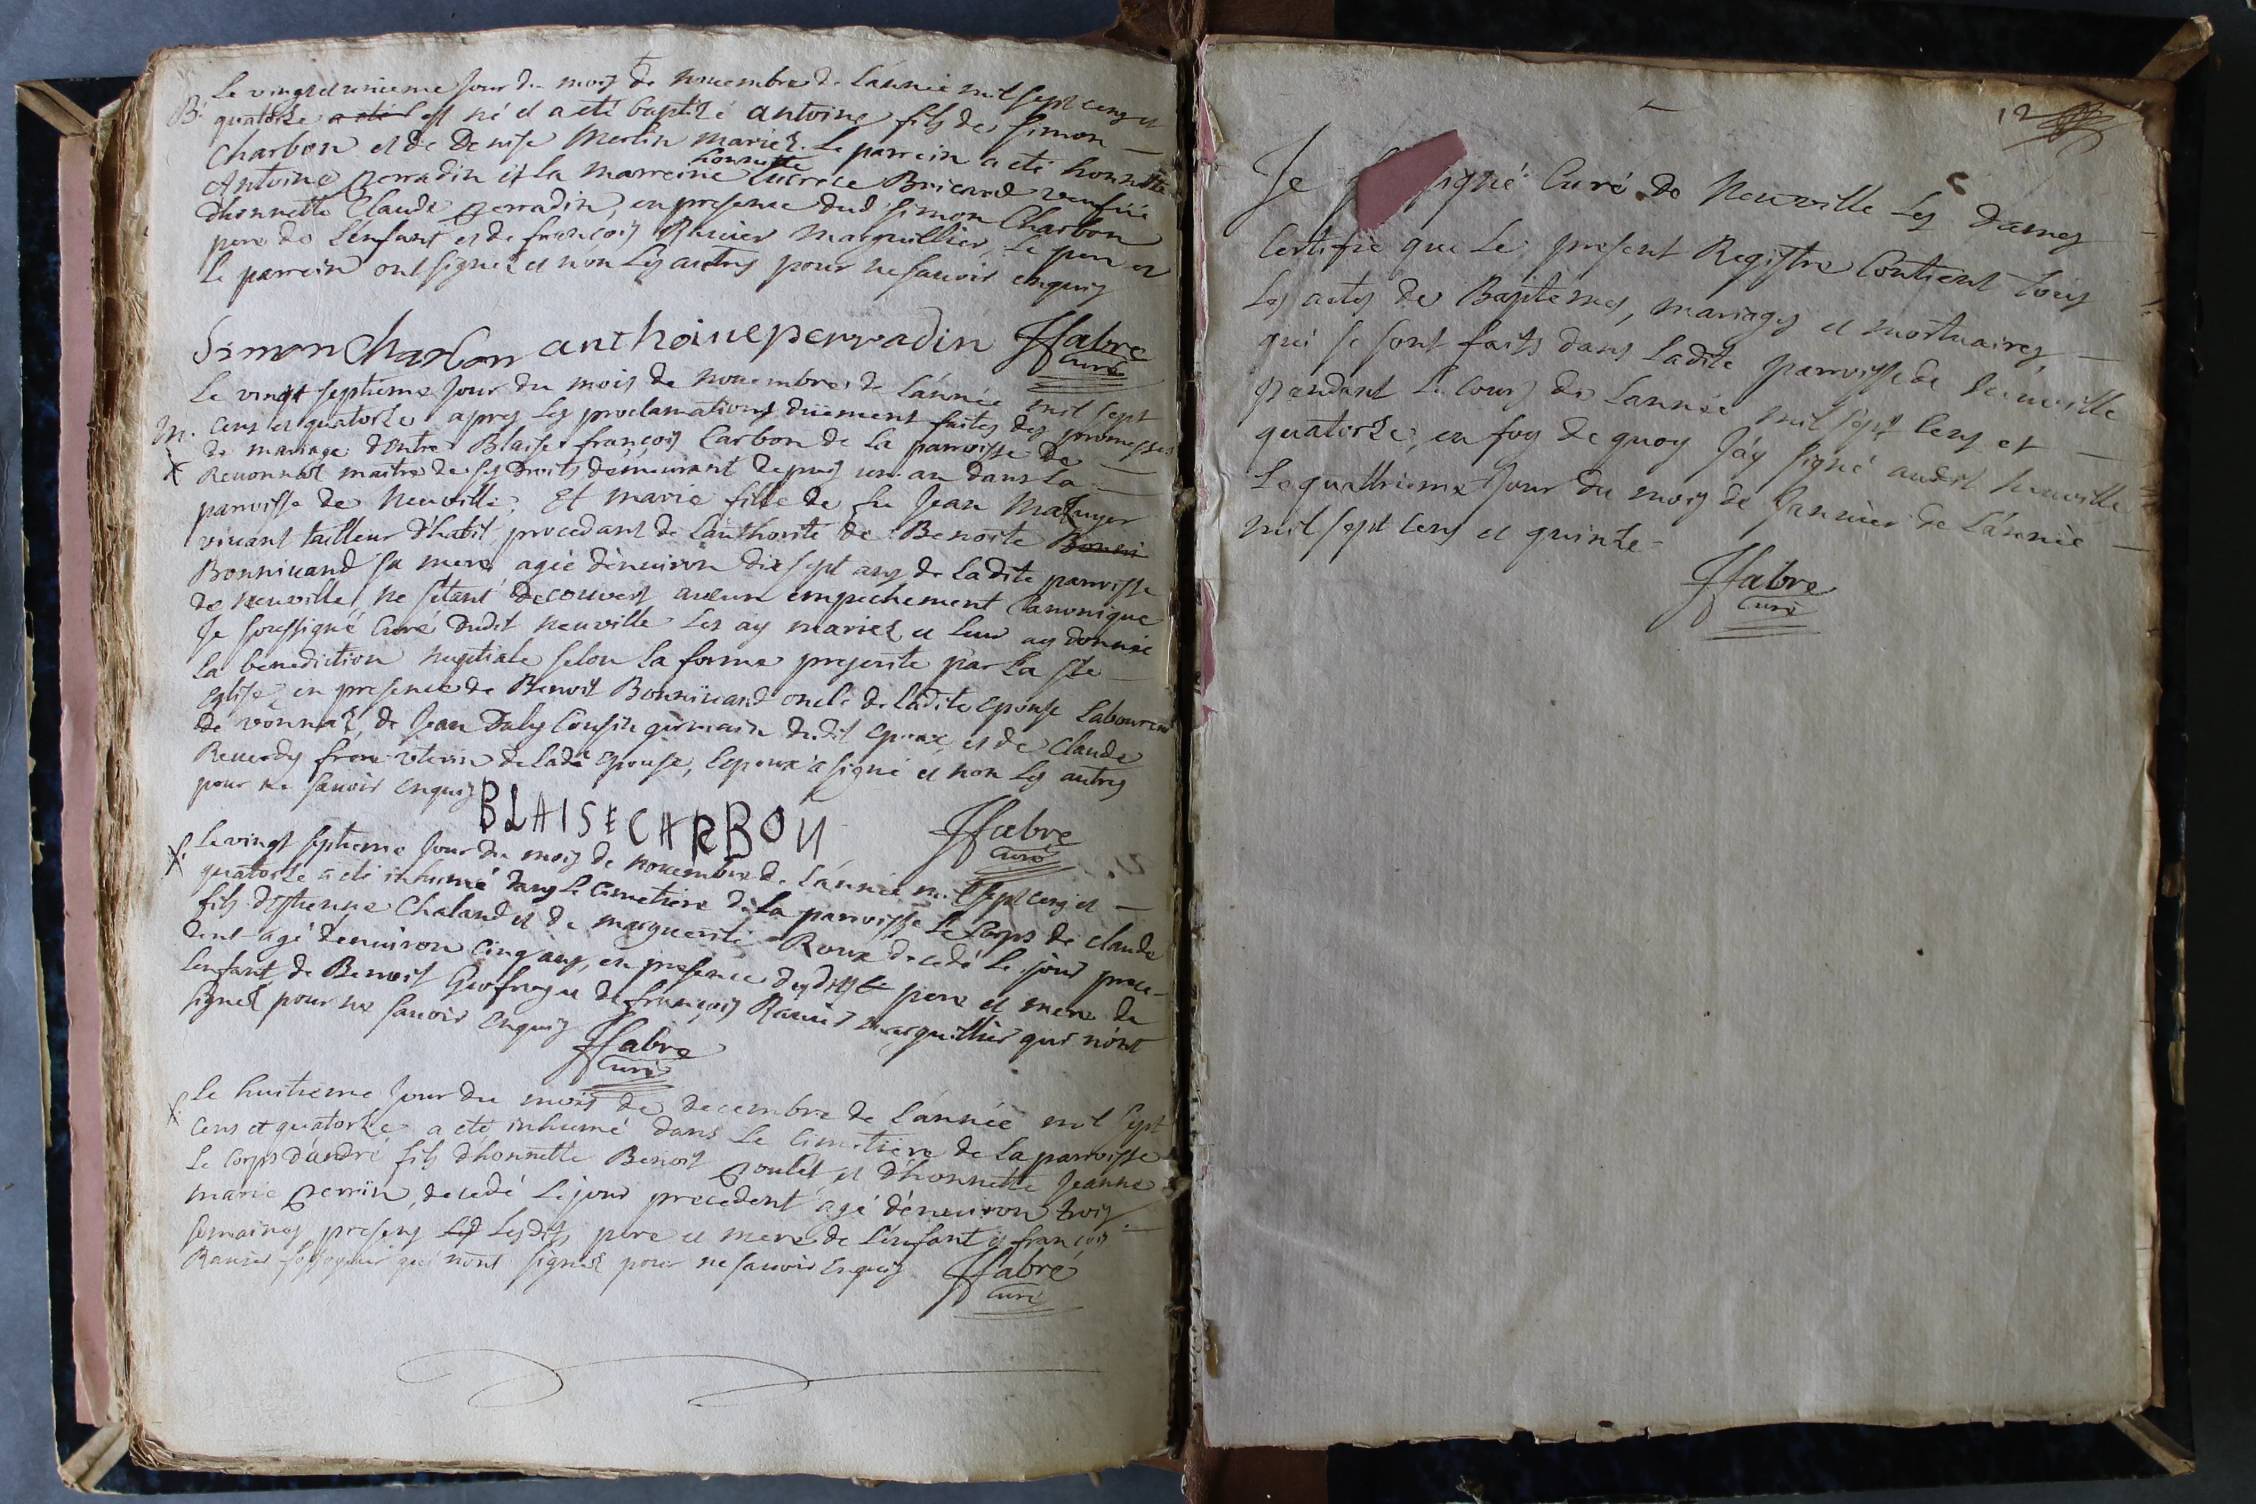 B.
Le vingt et unieme jour du mois de novembre de l'année mil sept cens et
quatorze a eté est né et a eté baptizé antoine fils de simon
Charbon et de Denise Merlin mariez. Le parrein a eté honnette
Antoine perradin et la marreine honnette lucrece Bricard veufüe
d'honnette Claude perradin, en presence dud simon Charbon
pere de L'enfant et de françois Ravier Marguillier, Le pere et
Le parrein ont signez et non Les autres pour ne savoir enquis
Simon Charbon anthoine perradin JFabre
curé
Le vingt septieme jour du mois de novembre de L'année mil sept
M. cens et quatorze apres Les proclamations düement faites des promesses
de mariage d'entre Blaise françois Carbon de La parroisse de
Revonnast maitre de ses Droits demeurant depuis un an dans La
parroisse de Neuville, Et marie fille de fu Jean
vivant tailleur d'habit, procedant de L'authorité de Benoite
Bonnivand sa mere agée d'enuiron dix sept ans de Ladite parroisse
de Neuville, ne s'étant decouvert aucun empechement Canonique
Je soussigné Curé dudit Neuville Les ay mariez et leur ay donné
La benediction nuptiale selon La forme prescrite par La ste
Eglise, en presence de Benoit Bonnivand oncle de Ladite Epouse Laboureur
de vonnaz, de Jean Daly Cousin germain dudit Epoux et de Claude
Reverdy frere uterin de Lade Epouse, L'epoux a signé et non Les autres
pour ne savoir Enquis
BLAISE CARBON JFabre
curé
Le vingt septieme jour du mois de novembre de L'année mil sept cens et
quatorze a eté inhumé dans Le Cimetiere de La parroisse Le Corps de claude
fils d'estienne Chaland et de marguerite Roux decedé Le jour prece-
dent agé d'enuiron Cinq ans, en presence desdits pere et mere de
L'enfant, de Benoit Geofray et de françois Ravier marguillier qui n'ont
signez pour ne savoir Enquis
JFabre
curé
Le huitieme jour du mois de decembre de L'année mil sept
Cens et quatorze a eté inhumé dans Le Cimetiere de La parroisse
Le Corps d'andré fils d'honnette Benoit poulet et d'honnette Jeanne
marie perrin, decedé Le jour precedent agé d'enuiron trois
semaines, presens Lesdits pere et mere de L'enfant et françois
Ravier fossoyeur qui n'ont signez pour ne savoir Enquis JFabre
curé
12
Je igné Curé de Neuville Les Dames
Certifie que Le present Registre Contient tous
Les actes de Baptemes, mariages et mortuaires,
qui se sont faits dans Ladite parroisse de Neuville
pendant Le cours de L'année mil sept Cens et
quatorze; en foy de quoy J'ay signé audit Neuville
Le quattrieme jour du mois de Janvier de L'année
mil sept Cens et quinze
JFabre
curé